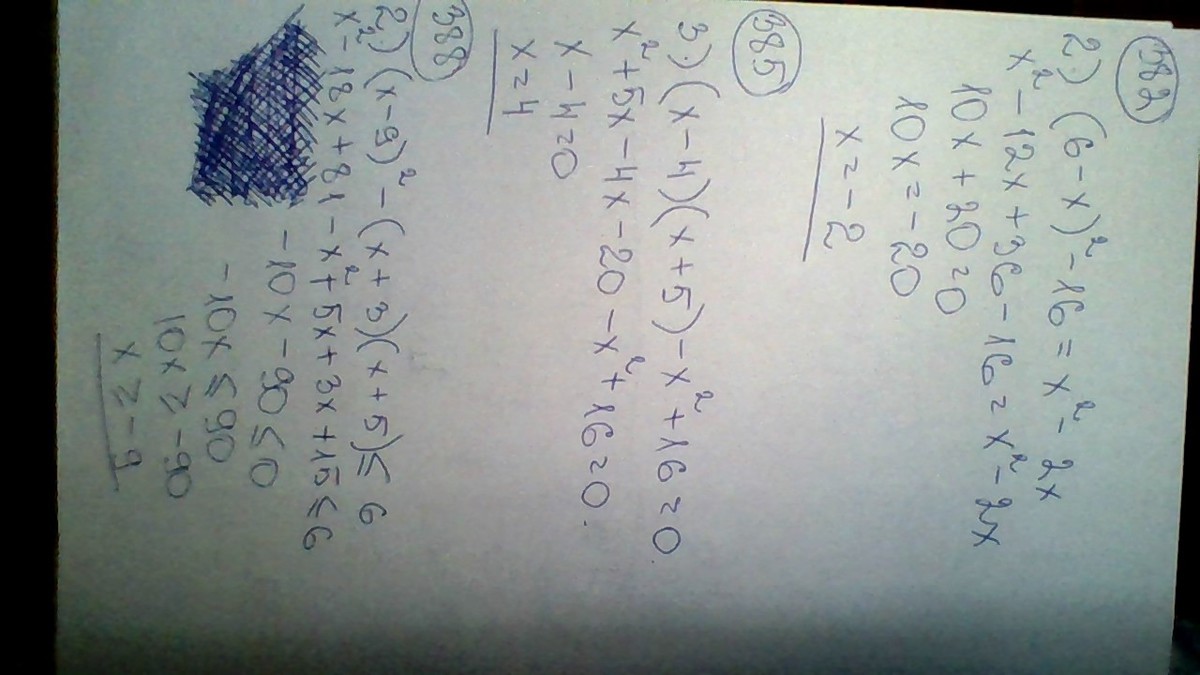 382
2) (6-x)² - 16 = x² - 2x
x² - 12x + 36 - 16 = x² - 2x
10x + 20 = 0
10x = -20
x = -2
385
3) (x-4)(x+5) - x² + 16 = 0
x² + 5x - 4x - 20 - x² + 16 = 0.
x - 4 = 0
x = 4
388
2) (x-9)² - (x+3)(x+5) ≤ 6
x² - 18x + 81 - x² + 5x + 3x + 15 ≤ 6
-10x - 90 ≤ 0
-10x ≤ 90
10x ≥ -90
x ≥ -9